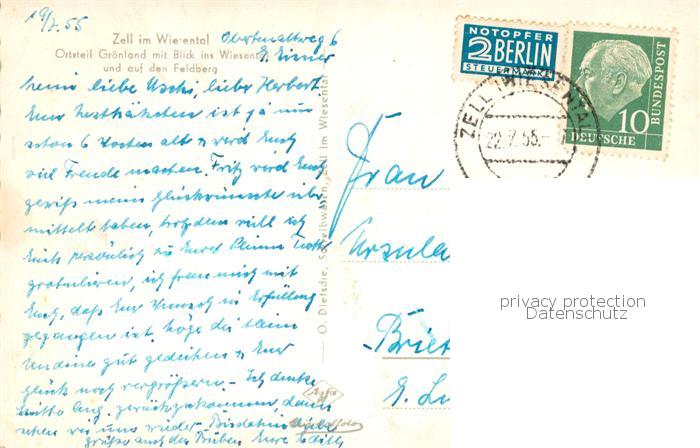 19/7.55
Zell im Wiesental
Obermattweg 6
Ortsteil Grönland mit Blick ins Wiesental
b/ Eisner
und auf den Feldberg
Meine liebe Uschi, lieber Herbert
Euer Nesthäkchen ist ja nun
schon 6 Wochen alt u wird Euch
viel Freude machen. Fritz wird Euch
gewiss meine Glückwünsche über-
mittelt haben, trotzdem will ich
Euch persönlich zu Eurer kleinen
gratulieren, ich freu mich mit
Euch, daß Euer Wunsch in Erfüllung
gegangen ist. Möge die kleine
Undine gut gedeihen u Euer
Glück noch vergrößern. – Ich denke
Mitte Aug. zurückzukommen, dann
sehen wir uns wieder. Bis dahin
Grüße auch der Eure Edith
O. Dietsche, Schreibwaren, Zell im Wiesental
NOTOPFER
2 BERLIN
STEUERMARKE
DEUTSCHE
BUNDESPOST
10
ZELL (WIESENTAL)
22.7.55.
Frau
Ursula
privacy protection
Datenschutz